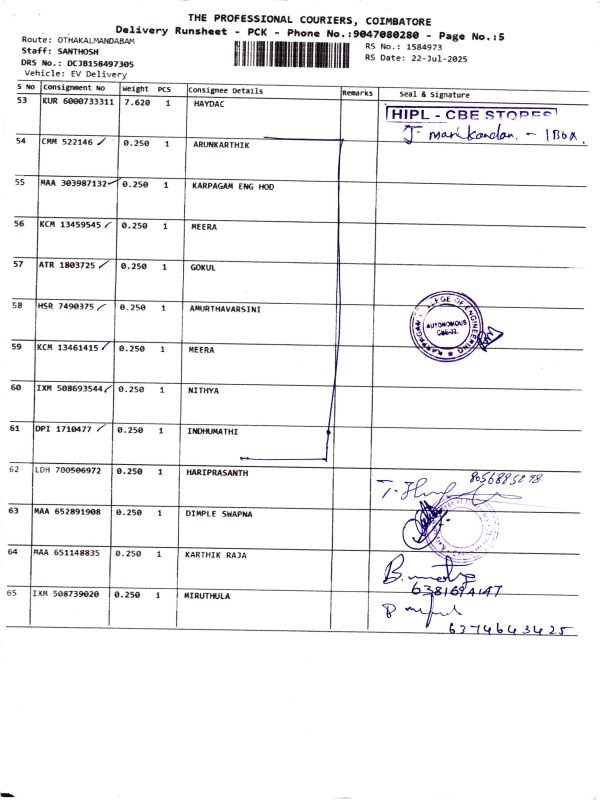 THE PROFESSIONAL COURIERS, COIMBATORE
Delivery Runsheet - PCK - Phone No.:9047080280 - Page No.:5
Route: OTHAKALMANDABAM
RS No.: 1584973
Staff: SANTHOSH
RS Date: 22-Jul-2025
DRS No.: DCJB158497305
Vehicle: EV Delivery
S No Consignment No Weight PCS Consignee Details Remarks Seal & Signature
53 KUR 6000733311 7.620 1 HAYDAC
HIPL - CBE STORES
J. manikandan. - 1BOX.
54 CMM 522146 0.250 1 ARUNKARTHIK
55 MAA 303987132 0.250 1 KARPAGAM ENG HOD
56 KCM 13459545 0.250 1 MEERA
57 ATR 1803725 0.250 1 GOKUL
58 HSR 7490375 0.250 1 AMURTHAVARSINI
KARPAGAM COLLEGE OF ENGINEERING
AUTONOMOUS
CBE-32.
59 KCM 13461415 0.250 1 MEERA
60 IXM 508693544 0.250 1 NITHYA
61 DPI 1710477 0.250 1 INDHUMATHI
62 LDH 700506972 0.250 1 HARIPRASANTH
63 MAA 652891908 0.250 1 DIMPLE SWAPNA
64 MAA 651148835 0.250 1 KARTHIK RAJA
6381694147
65 IXM 508739020 0.250 1 MIRUTHULA
6374643425